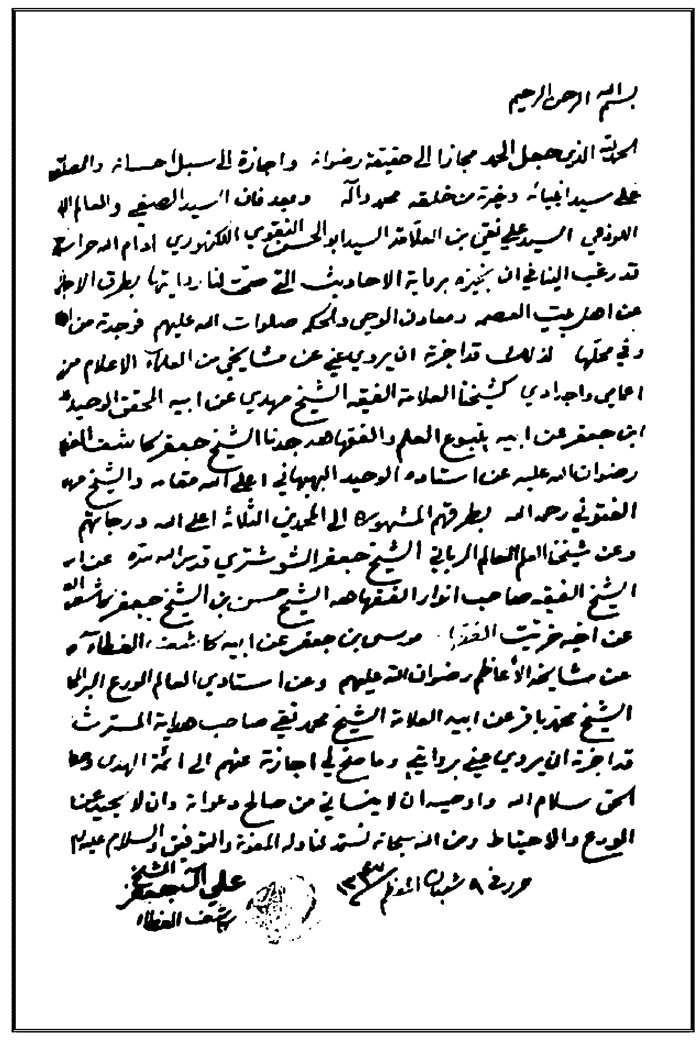 بسم الله الرحمن الرحيم
الحمد لله الذي جعل الحمد مجازا الى حقيقة رضوانه واجازة الى سبيل احسانه والصلوة
على سيد انبيائه وخيرة من خلقه محمد وآله وبعد فان السيد الصفي والعالم
اللوذعي السيد علي نقي بن العلامة السيد ابو الحسن النقوي اللكنهوري ادام الله حراسته
قد رغب الينا في ان نجيزه برواية الاحاديث التي صحت لنا روايتها بطرق الاجازة
عن اهل بيت العصمه ومعادن الوحي والحكم صلوات الله عليهم فوجدته من
وفي محلها لذلك قد اجزته ان يروي عني عن مشايخي من العلماء الاعلام من
اعمامي واجدادي كشيخنا العلامة الفقيه الشيخ مهدي عن ابيه المحقق الوحيد
ابن جعفر عن ابيه ينبوع العلم والفقاهه جدنا الشيخ جعفر كاشف الغطاء
رضوان الله عليه عن استاده الوحيد البهبهاني اعلى الله مقامه والشيخ
الفتوني رحمه الله بطرقهم المشهورة الى المحمدين الثلاثة اعلى الله درجاتهم
وعن شيخنا العلم العالم الرباني الشيخ جعفر الشوشتري قدس الله سره عن
الشيخ الفقيه صاحب انوار الفقاهه الشيخ حسن بن الشيخ جعفر كاشف الغطاء
عن اخيه خريت موسى بن جعفر عن ابيه كاشف الغطاء
عن مشايخه الأعاظم رضوان الله عليهم وعن استادي العالم الورع
الشيخ محمد باقر عن ابيه العلامة الشيخ محمد تقي صاحب هداية المسترشدين
قد اجزته ان يروي عني بروايتي وما صح لي اجازة عنهم الى ائمة الهدى
الحق سلام الله واوصيه ان لا ينساني من صالح دعواته وان لا يحيد عن
الورع والاحتياط ومن الله سبحانه نستمد لنا وله المعونة والتوفيق والسلام عليه
حرر في ٩ شعبان المعظم ١٣٤٣
الشيخ
علي آل جعفر
كاشف الغطاء